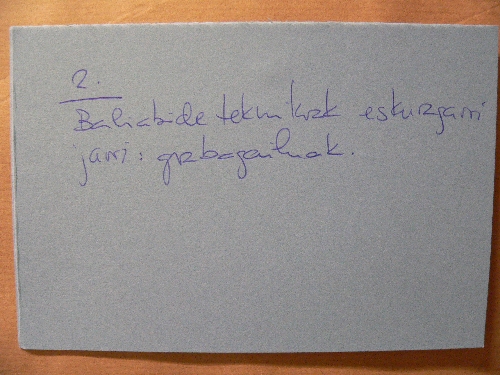 2.
Baliabide teknikoak eskuragarri
jarri: grabagailuak.